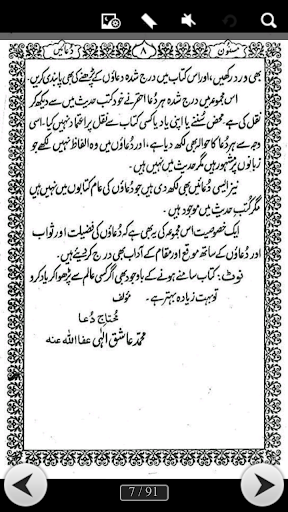 مسنون ۸ دُعائیں
بھی ورد رکھیں، اور اس کتاب میں درج شدہ دعاؤں کے پڑھنے کی بھی پابندی کریں۔
اس مجموعہ میں درج شدہ ہر دُعا احقر نے خود کتب حدیث میں سے دیکھ کر
نقل کی ہے، محض سُننے یا اپنی یاد یا کسی کتاب کے نقل پر اعتماد نہیں کیا۔ اسی
وجہ سے ہر دُعا کا حوالہ بھی لکھ دیا ہے، اور دعاؤں میں وہ الفاظ نہیں لکھے جو
زبانوں پر مشہور ہیں مگر حدیث میں نہیں ہیں۔
نیز ایسی دُعائیں بھی لکھ دی ہیں جو دعاؤں کی عام کتابوں میں نہیں ہیں
مگر کُتب حدیث میں موجود ہیں۔
ایک خصوصیت اس مجموعہ کی یہ بھی ہے کہ دُعاؤں کی فضیلت اور ثواب
اور دُعاؤں کے ساتھ موقع اور مقام کے آداب بھی درج کر دیئے ہیں۔
نوٹ: کتاب سامنے ہونے کے باوجود بھی اگر کسی عالم سے پڑھوا کر یاد کرو
تو بہت زیادہ بہتر ہے۔ مؤلف
مُحتاجِ دُعا
محمد عاشق الٰہی عفا اللہ عنہ
7 / 91